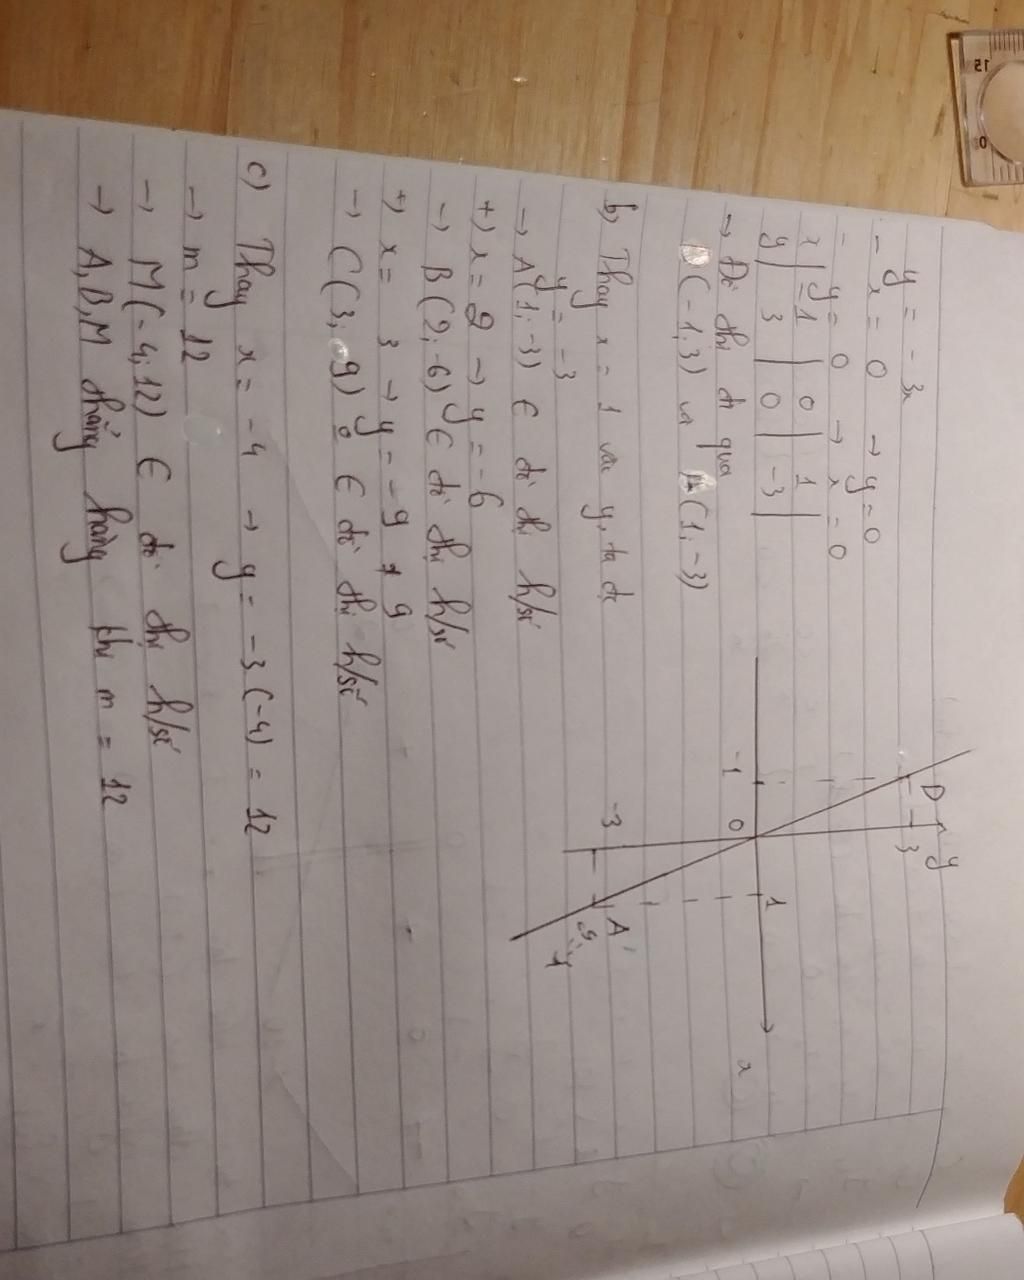 y = -3x
- x = 0 → y = 0
- y = 0 → x = 0
x | -1 | 0 | 1 |
y | 3 | 0 | -3 |
→ Đồ thị đi qua
D(-1; 3) và A(1; -3)
y
D
3
-1
0
1
x
-3
A
b) Thay x = 1 vào y, ta đc
y = -3
→ A(1; -3) ∈ đồ thị h/số
+) x = 2 → y = -6
→ B(2; -6) ∈ đồ thị h/số
+) x = 3 → y = -9 ≠ 9
→ C(3; 9) ∉ đồ thị h/số
c) Thay x = -4 → y = -3(-4) = 12
→ m = 12
→ M(-4; 12) ∈ đồ thị h/số
→ A, B, M thẳng hàng thì m = 12
15
0